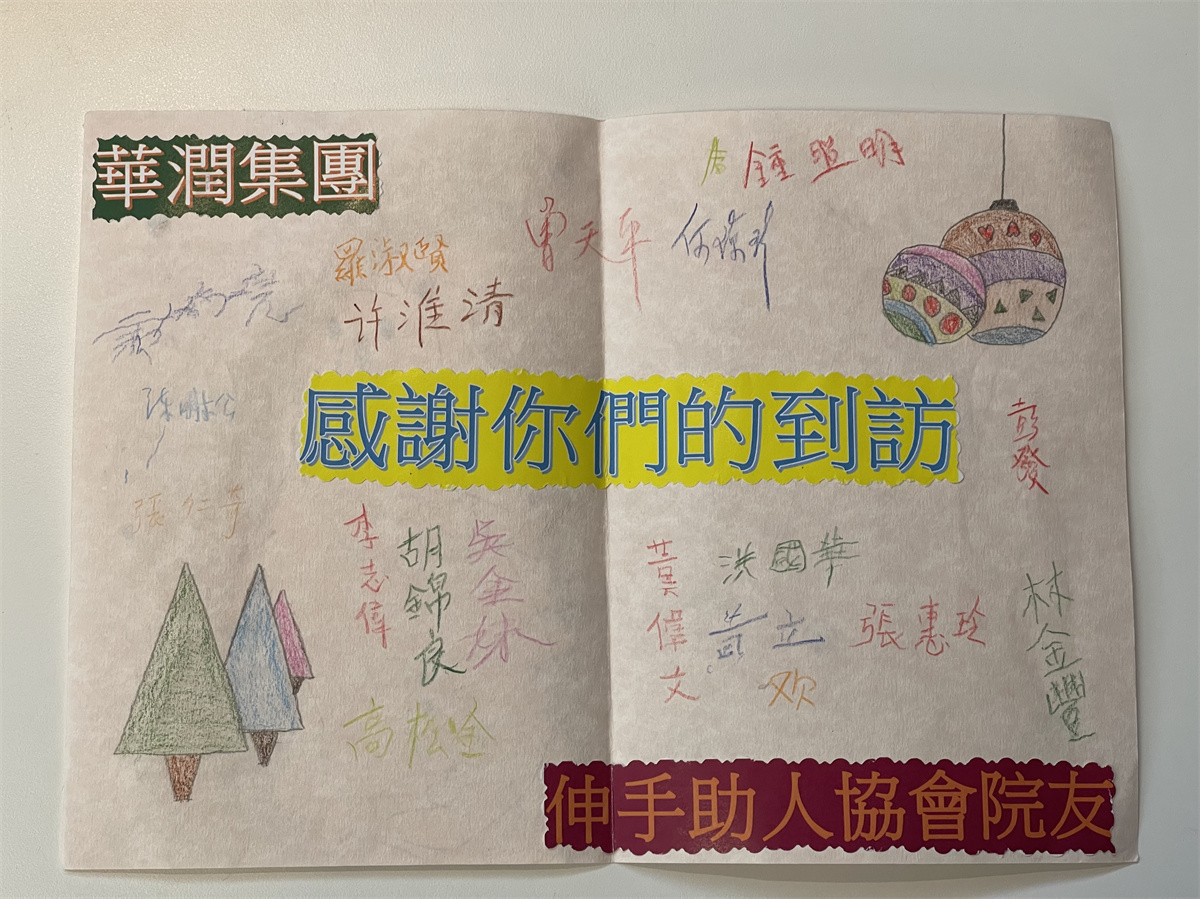 華潤集團
鍾照明
曾天平
羅淑賢
许淮清
感謝你們的到訪
彭發
張仁奇
李志偉
胡錦良
吳金妹
黃偉文
洪國華
黃立
欢
張惠玲
林金豐
高松
伸手助人協會院友